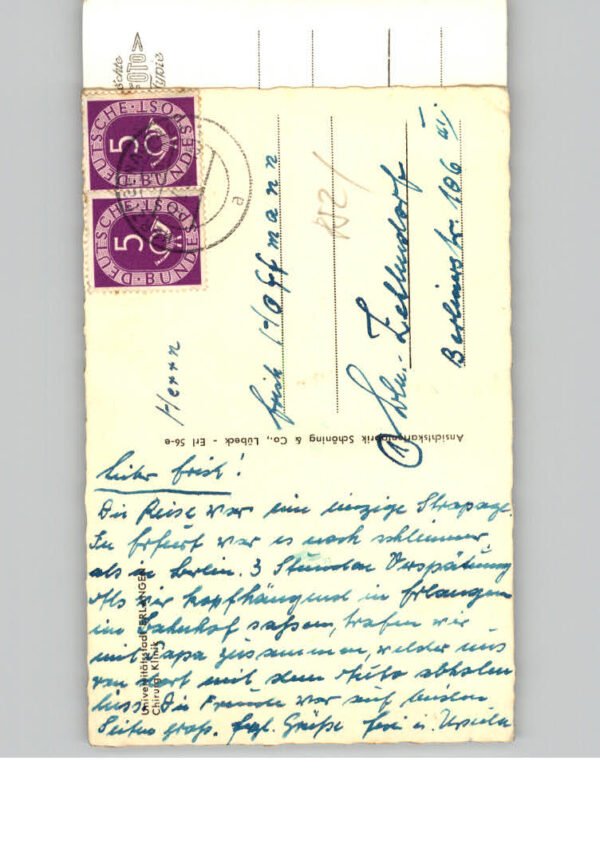 Lieber Erich!
Die Reise war eine einzige Strapaze.
In Erfurt war es noch schlimmer
als in Berlin. 3 Stunden Verspätung
Als wir kopfhängend in Erlangen
im Bahnhof saßen, trafen wir
mit Papa zusammen, welcher uns
von dort mit dem Auto abholen
liess. Die Freude war auf beiden
Seiten groß. Hzgl. Grüße u. Ursula
Herrn
Erich Hoffmann
Bln.-Zehlendorf
Berlinerstr. 106
Ansichtskartenfabrik Schöning & Co., Lübeck - Erl 56-e
Universitätsstadt ERLANGEN
Chirurg. Klinik
DEUTSCHE BUNDESPOST
5
DEUTSCHE BUNDESPOST
5
a
FOTO